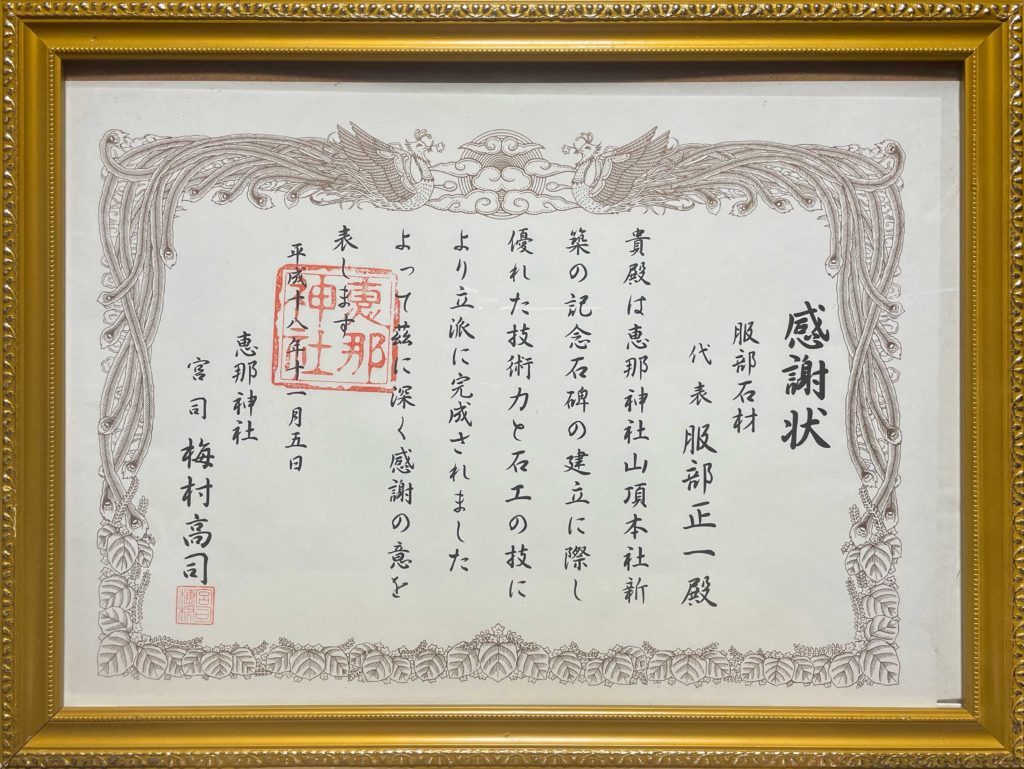 感謝状
服部石材
代表 服部正一殿
貴殿は恵那神社山頂本社新
築の記念石碑の建立に際し
優れた技術力と石工の技に
より立派に完成されました
よって茲に深く感謝の意を
表します
平成十八年十一月五日
恵那神社
宮司 梅村高司
恵那
神社